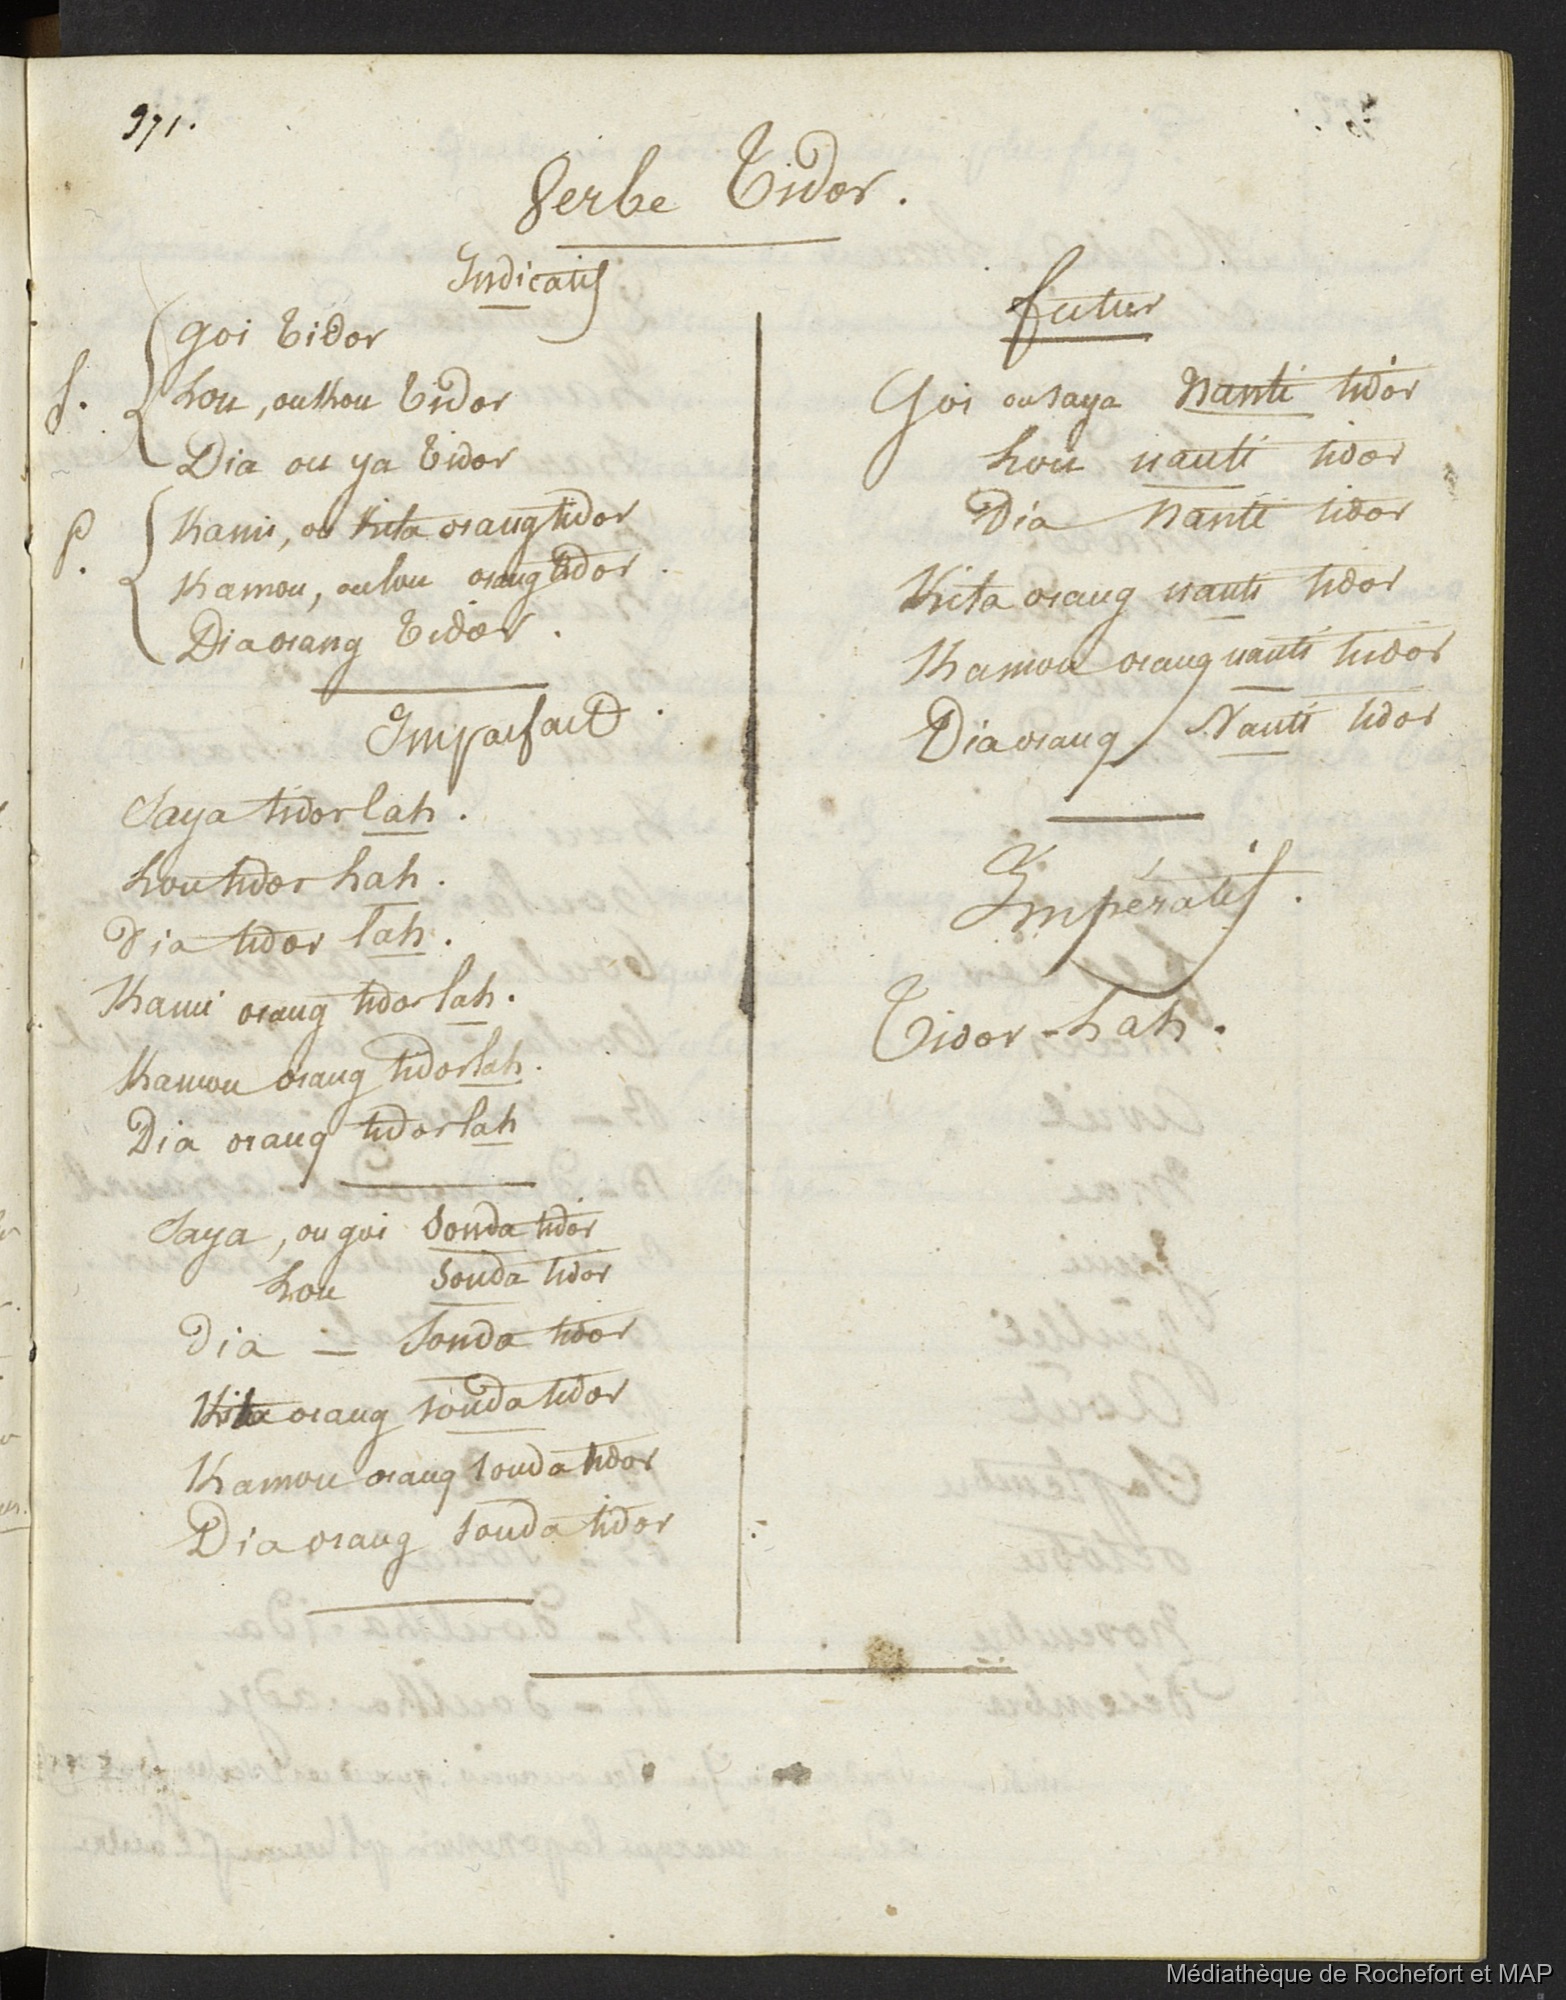 371.
Verbe Tidor.
Indicatif
S.
goi tidor
Lou, ou Kou tidor
Dia ou ya tidor
P.
Kami, ou Kita orang tidor
Kamou, ou lou orang tidor.
Dia orang tidor.
Imparfait.
Saya tidor lah.
Lou tidor Lah.
Dia tidor lah.
Kami orang tidor lah.
Kamou orang tidor lah.
Dia orang tidor lah
Saya, ou goi Souda tidor
Lou Souda tidor
Dia — Souda tidor
Kita orang souda tidor
Kamou orang souda tidor
Dia orang souda tidor
futur
Goi ou saya Nanti tidor
Lou nanti tidor
Dia Nanti tidor
Kita orang nanti tidor
Kamou orang nanti tidor
Dia orang Nanti tidor
Impératif.
Tidor-Lah.
Médiathèque de Rochefort et MAP